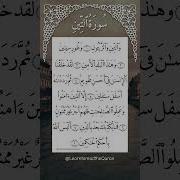 سُورَةُ التِّينِ
وَٱلتِّينِ وَٱلزَّيْتُونِ ١ وَطُورِ سِينِينَ ٢
وَهَٰذَا ٱلْبَلَدِ ٱلْأَمِينِ ٣ لَقَدْ خَلَقْنَا
ٱلْإِنسَٰنَ فِىٓ أَحْسَنِ تَقْوِيمٍ ٤ ثُمَّ رَدَدْنَٰهُ
أَسْفَلَ سَٰفِلِينَ ٥ إِلَّا ٱلَّذِينَ ءَامَنُوا۟
وَعَمِلُوا۟ ٱلصَّٰلِحَٰتِ فَلَهُمْ أَجْرٌ غَيْرُ مَمْنُونٍ ٦
فَمَا يُكَذِّبُكَ بَعْدُ بِٱلدِّينِ ٧ أَلَيْسَ ٱللَّهُ
بِأَحْكَمِ ٱلْحَٰكِمِينَ ٨
@LearntoreadtheQuran